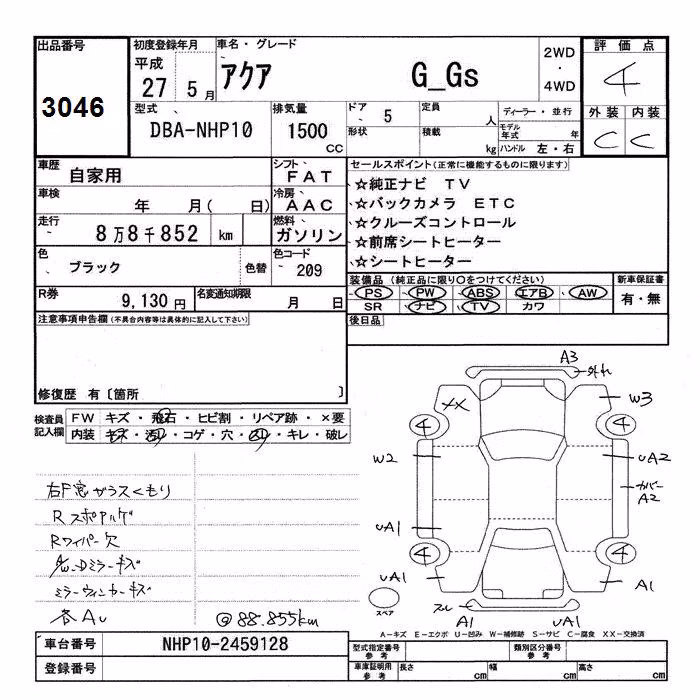 出品番号
3046
初度登録年月
平成
27 5 月
車名・グレード
アクア G_Gs
2WD
・
4WD
評価点
4
外装 内装
C C
型式
DBA-NHP10
排気量
1500 CC
ドア 5
形状
定員 人
積載 kg
ディーラー・並行
モデル年式 年
ハンドル 左・右
車歴 自家用
シフト FAT
車検 年 月( 日)
冷房 AAC
走行 8万8千852 km
燃料 ガソリン
色 ブラック 色替
色コード 209
R券 9,130 円
名変通知期限 月 日
セールスポイント(正常に機能するものに限ります)
☆純正ナビ TV
☆バックカメラ ETC
☆クルーズコントロール
☆前席シートヒーター
☆シートヒーター
装備品(純正品に限り○をつけてください)
PS PW ABS エアB AW
SR ナビ TV カワ
新車保証書
有・無
後日品
注意事項申告欄(不具合内容等は具体的に記入して下さい)
修復歴 有〔箇所 〕
検査員記入欄
FW キズ・飛石・ヒビ割・リペア跡・×要
内装 キズ・汚レ・コゲ・穴・スレ・キレ・破レ
右F窓ガラスくもり
Rスポアルゲ
Rワイパー欠
ミラーウィンカーキズ
各AU
@88.855km
A3
外れ
XX
W3
4
4
W2
UA2
カバー
A2
UA1
4
4
UA1
A1
スペア
スレ
A1
UA1
A-キズ E-エクボ U-凹み W-補修跡 S-サビ C-腐食 XX-交換済
車台番号 NHP10-2459128
登録番号
型式指定番号 参考
類別区分番号 参考
車庫証明用 参考 長さ cm 幅 cm 高さ cm